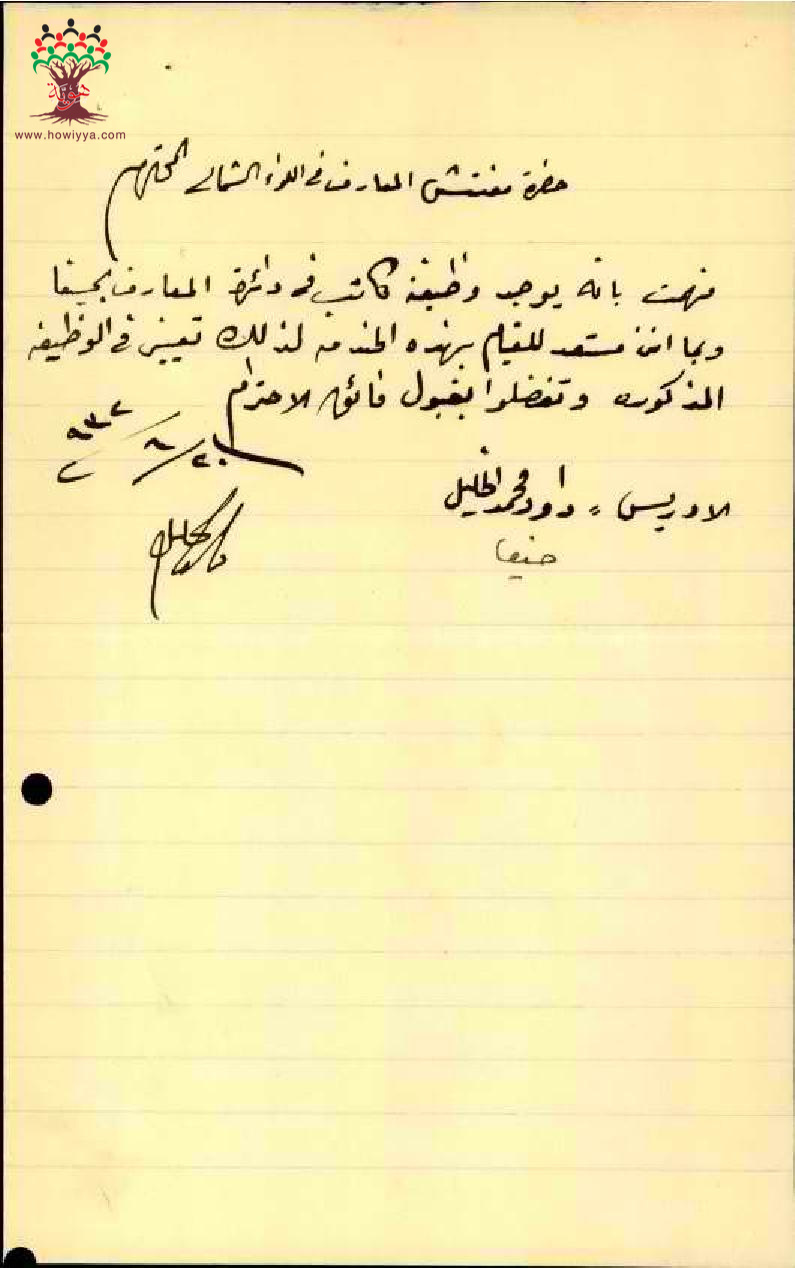 هوية
www.howiyya.com
حضرة مفتش المعارف في اللواء الشمالي المحترم
فهمت بانه يوجد وظيفة كاتب في دائرة المعارف بحيفا
وبما انني مستعد للقيام بهذه الخدمة لذلك تعييني في الوظيفه
المذكوره وتفضلوا بقبول فائق الاحترام
٢٠/٨/٩٣٢
داود محمد الخليل
حيفا